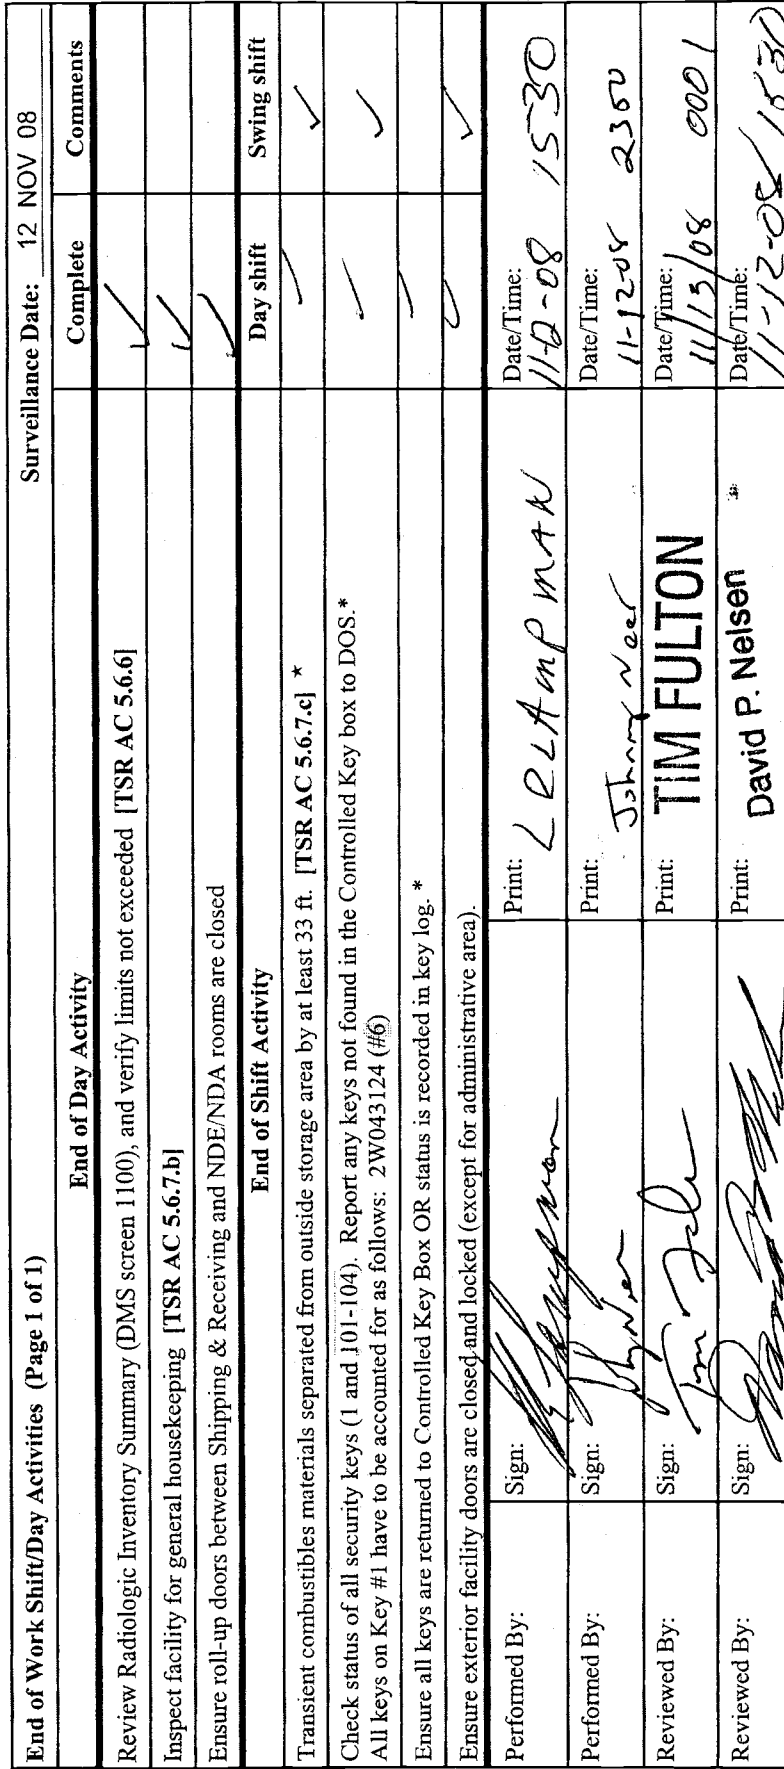 End of Work Shift/Day Activities (Page 1 of 1) Surveillance Date: 12 NOV 08
End of Day Activity Complete Comments
Review Radiologic Inventory Summary (DMS screen 1100), and verify limits not exceeded [TSR AC 5.6.6] ✓
Inspect facility for general housekeeping [TSR AC 5.6.7.b] ✓
Ensure roll-up doors between Shipping & Receiving and NDE/NDA rooms are closed ✓
End of Shift Activity Day shift Swing shift
Transient combustibles materials separated from outside storage area by at least 33 ft. [TSR AC 5.6.7.c] * ✓ ✓
Check status of all security keys (1 and 101-104). Report any keys not found in the Controlled Key box to DOS.* ✓ ✓
All keys on Key #1 have to be accounted for as follows: 2W043124 (#6)
Ensure all keys are returned to Controlled Key Box OR status is recorded in key log. * ✓
Ensure exterior facility doors are closed and locked (except for administrative area). ✓ ✓
Performed By: Sign: Print: L R LAMPMAN Date/Time: 11-12-08 1530
Performed By: Sign: Print: Johnny Neer Date/Time: 11-12-08 2300
Reviewed By: Sign: Print: TIM FULTON Date/Time: 11/13/08 0001
Reviewed By: Sign: Print: David P. Nelsen Date/Time: 11-12-08/1530